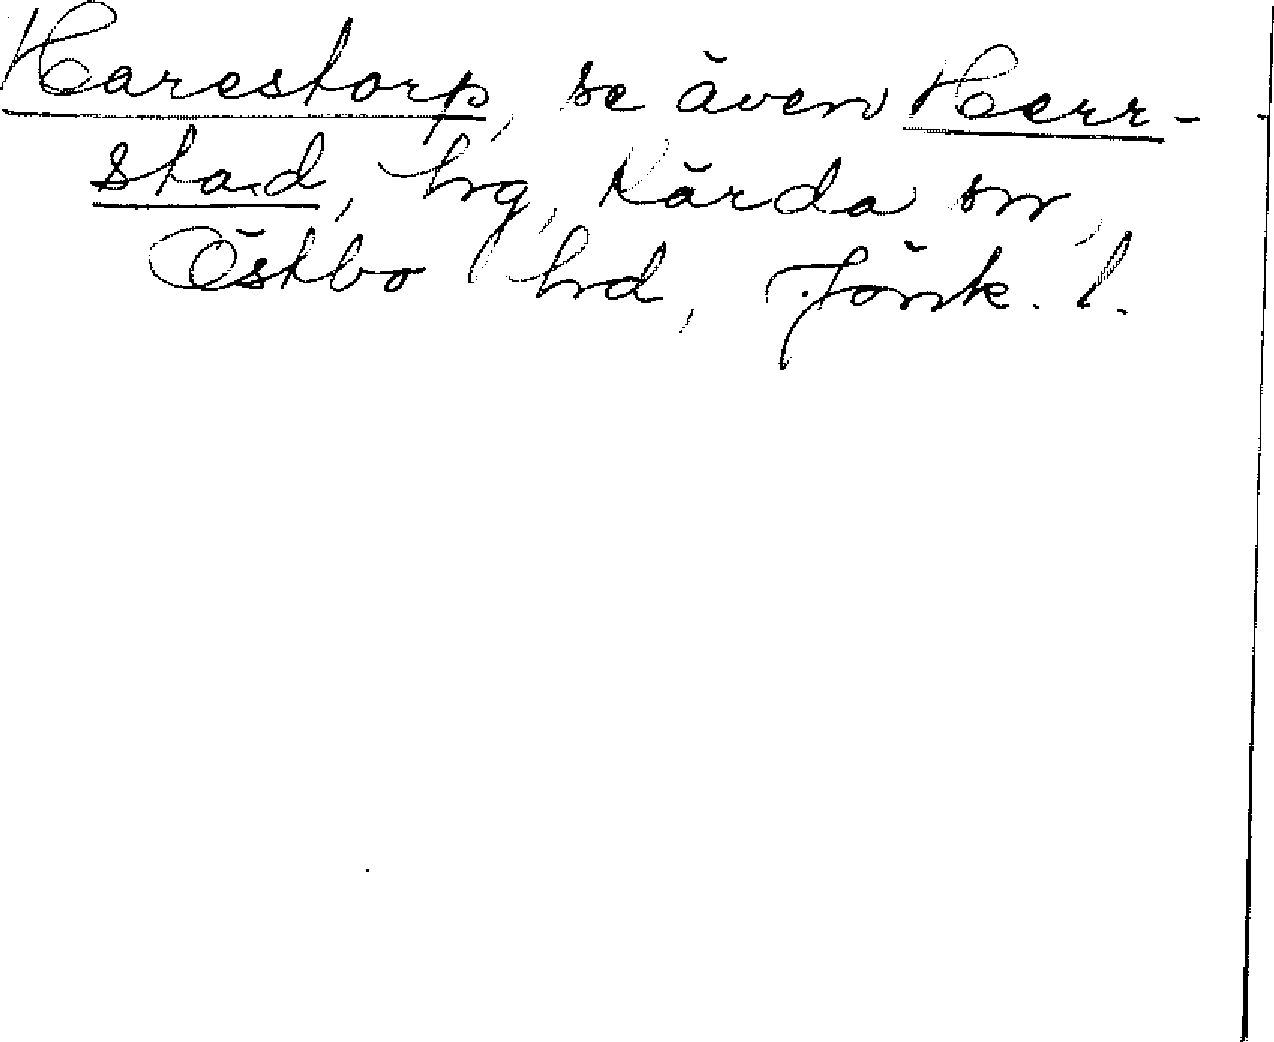 Harestorp, se även Herr-
stad, hg, Kärda sn,
Östbo hd, Jönk. l.